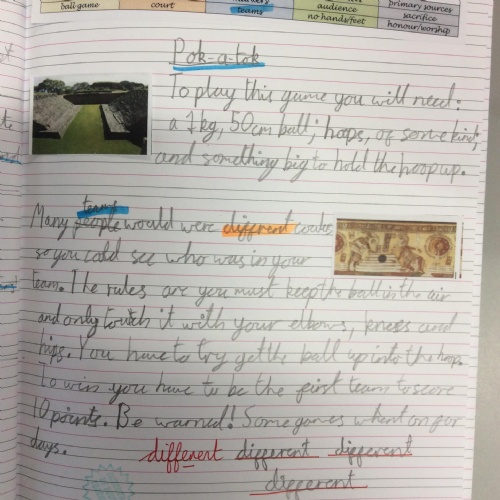 ball game
court
teams
audience
no hands/feet
primary sources
sacrifice
honour/worship
Pok-a-tok
To play this game you will need:
a 1kg, 50cm ball; hoops, of some kind;
and something big to hold the hoop up.
teams
Many people would were different
so you cold see who was in your
team. The rules are you must keep the ball in the air
and only touch it with your elbows, knees and
hips. You have to try get the ball up into the hoop.
To win you have to be the first team to score
10 points. Be warned! Some games whent on for
days.
different different different
different